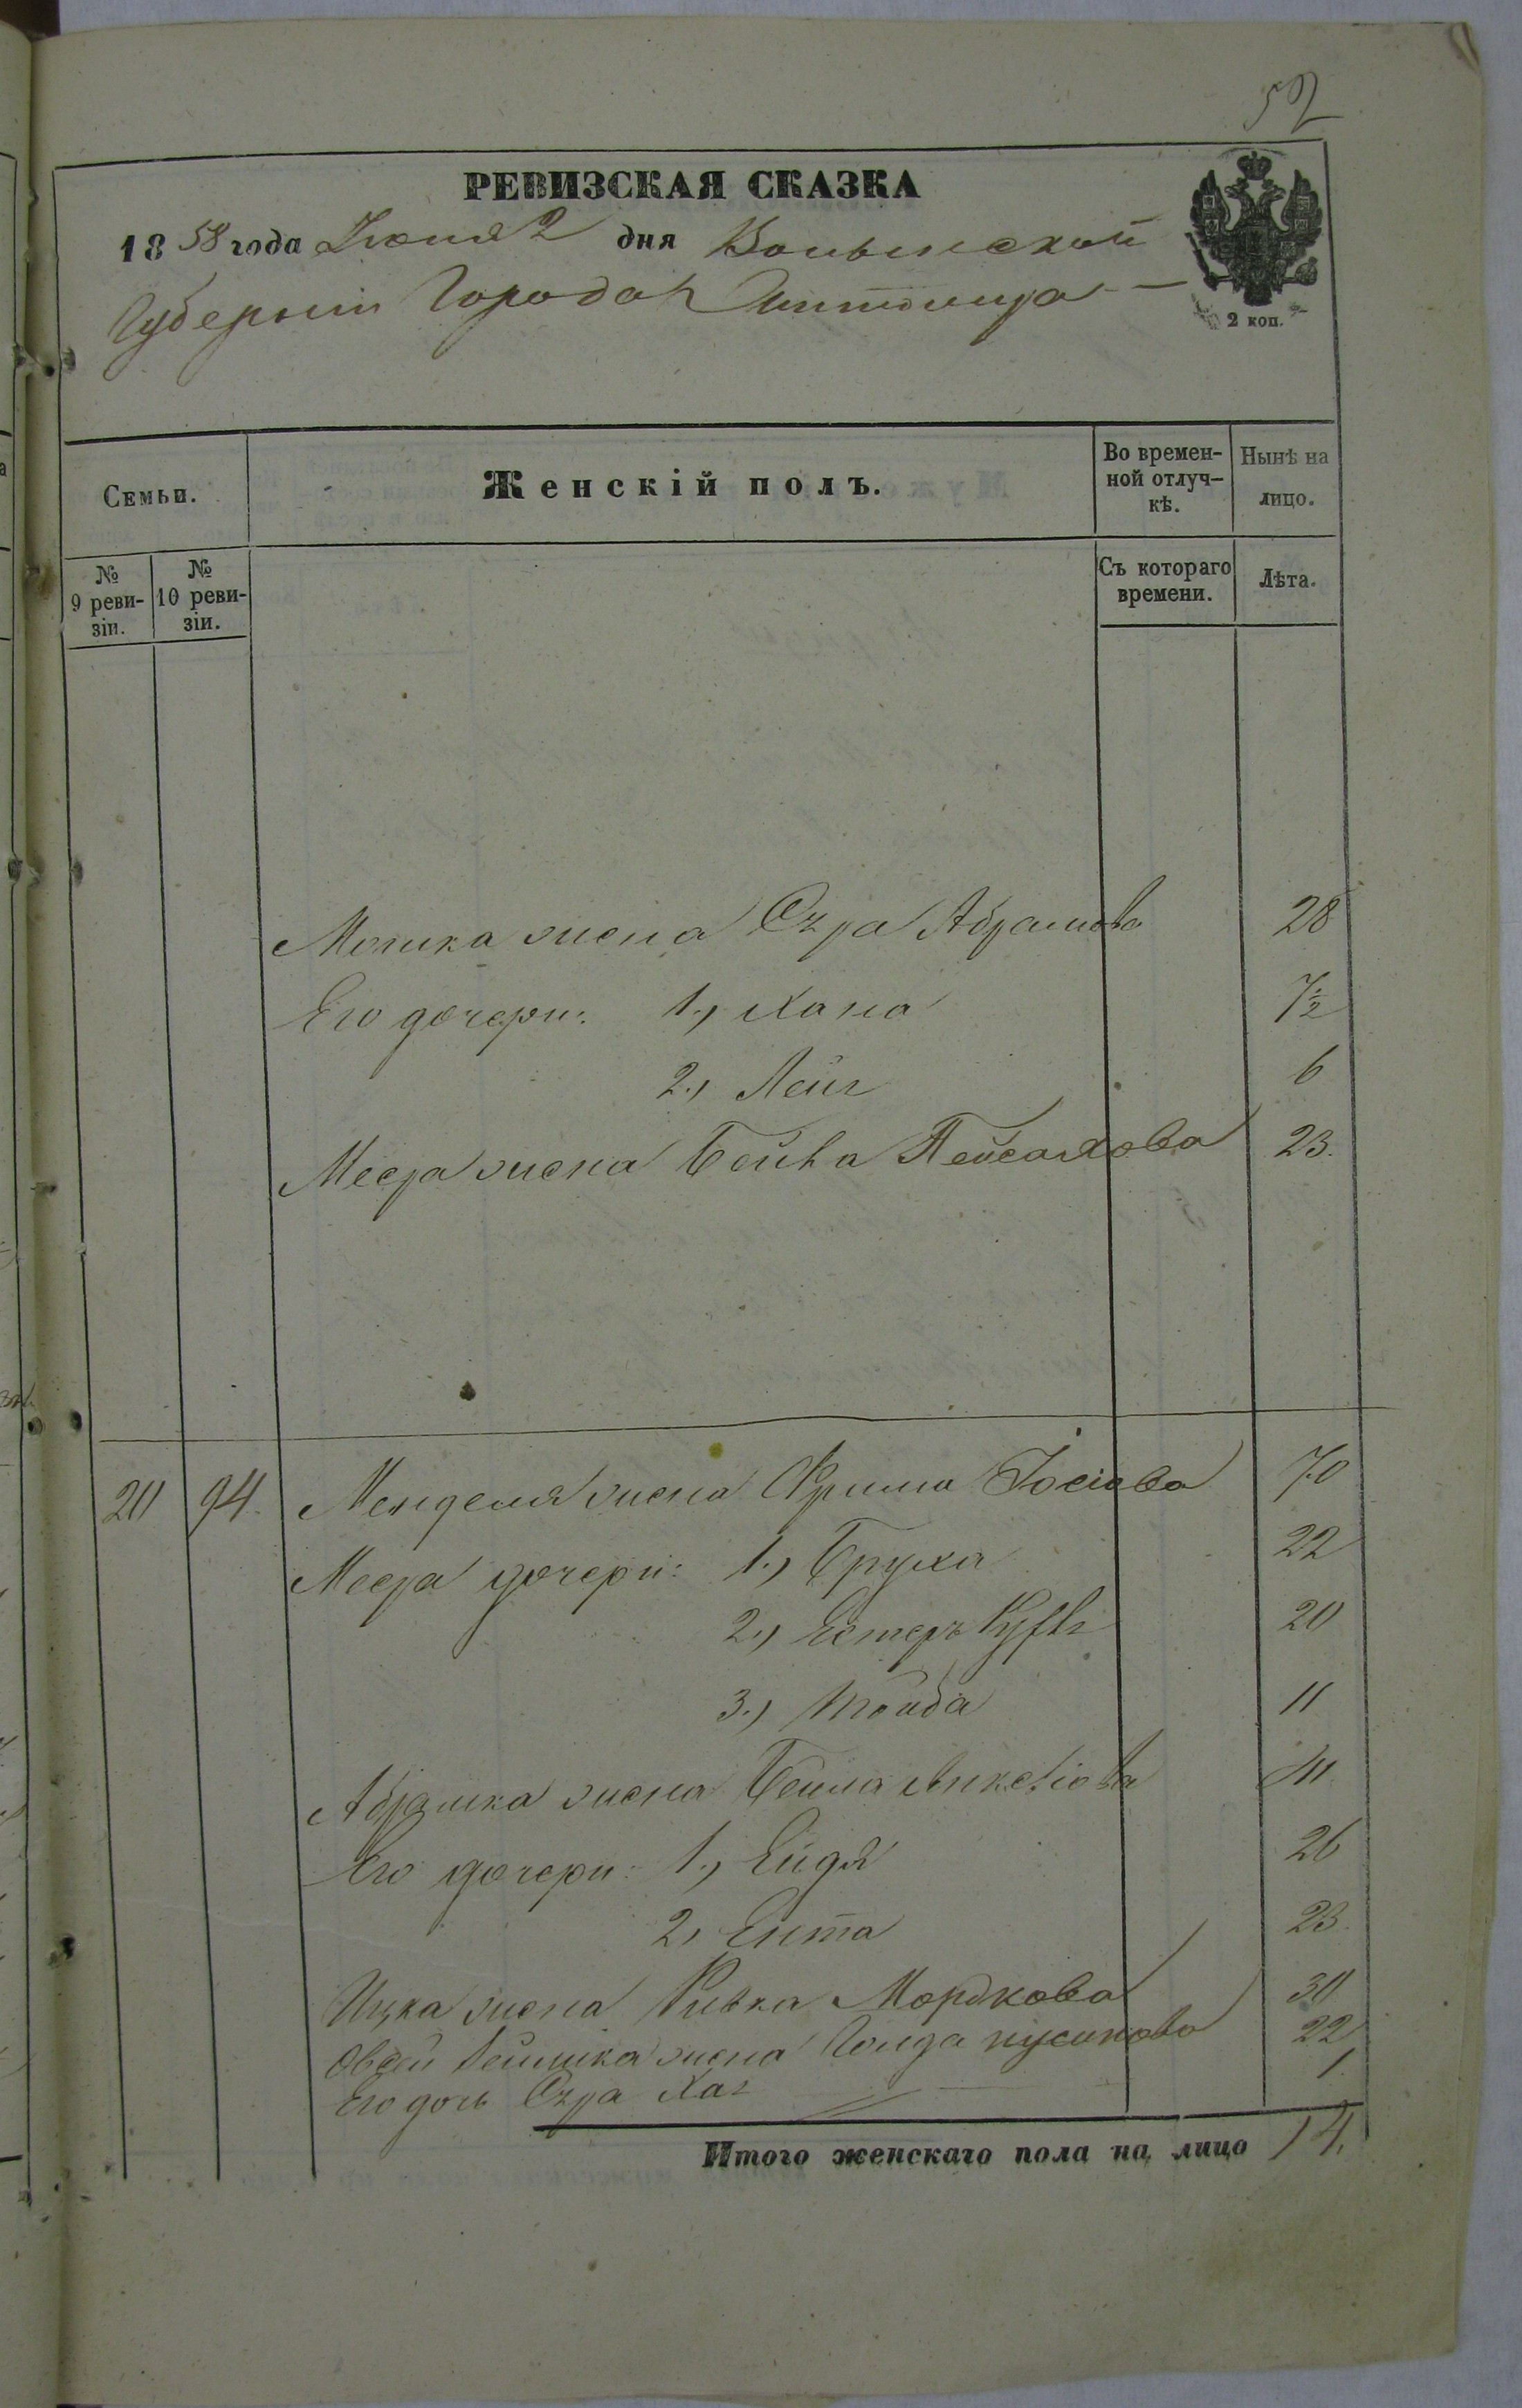 52
РЕВИЗСКАЯ СКАЗКА
1858 года Июня 2 дня Волынской
Губерніи Города Житомира
2 коп.
Семьи.
Женскій полъ.
Во времен-
ной отлуч-
кѣ.
Нынѣ на
лицо.
№
9 реви-
зіи.
№
10 реви-
зіи.
Съ котораго
времени.
Лѣта.
Мошка жена Сура Абрамова 28
Его дочери: 1., Хана 7½
2., Лея 6
Меера жена Бейла Пейсахова 23.
20 94. Менделя жена Фрима Іосіова 70
Меера дочери: 1., Бруха 22
2., Естеръ 20
3., Тойба 11
Абрамка жена Бейла
Его дочери: 1., Ейдя 26
2, Ента 23.
Ицка жена Ривка Мордкова 30
Овсей жена Голда 22
Его дочь Сура Хая 1.
Итого женскаго пола на лицо 14.